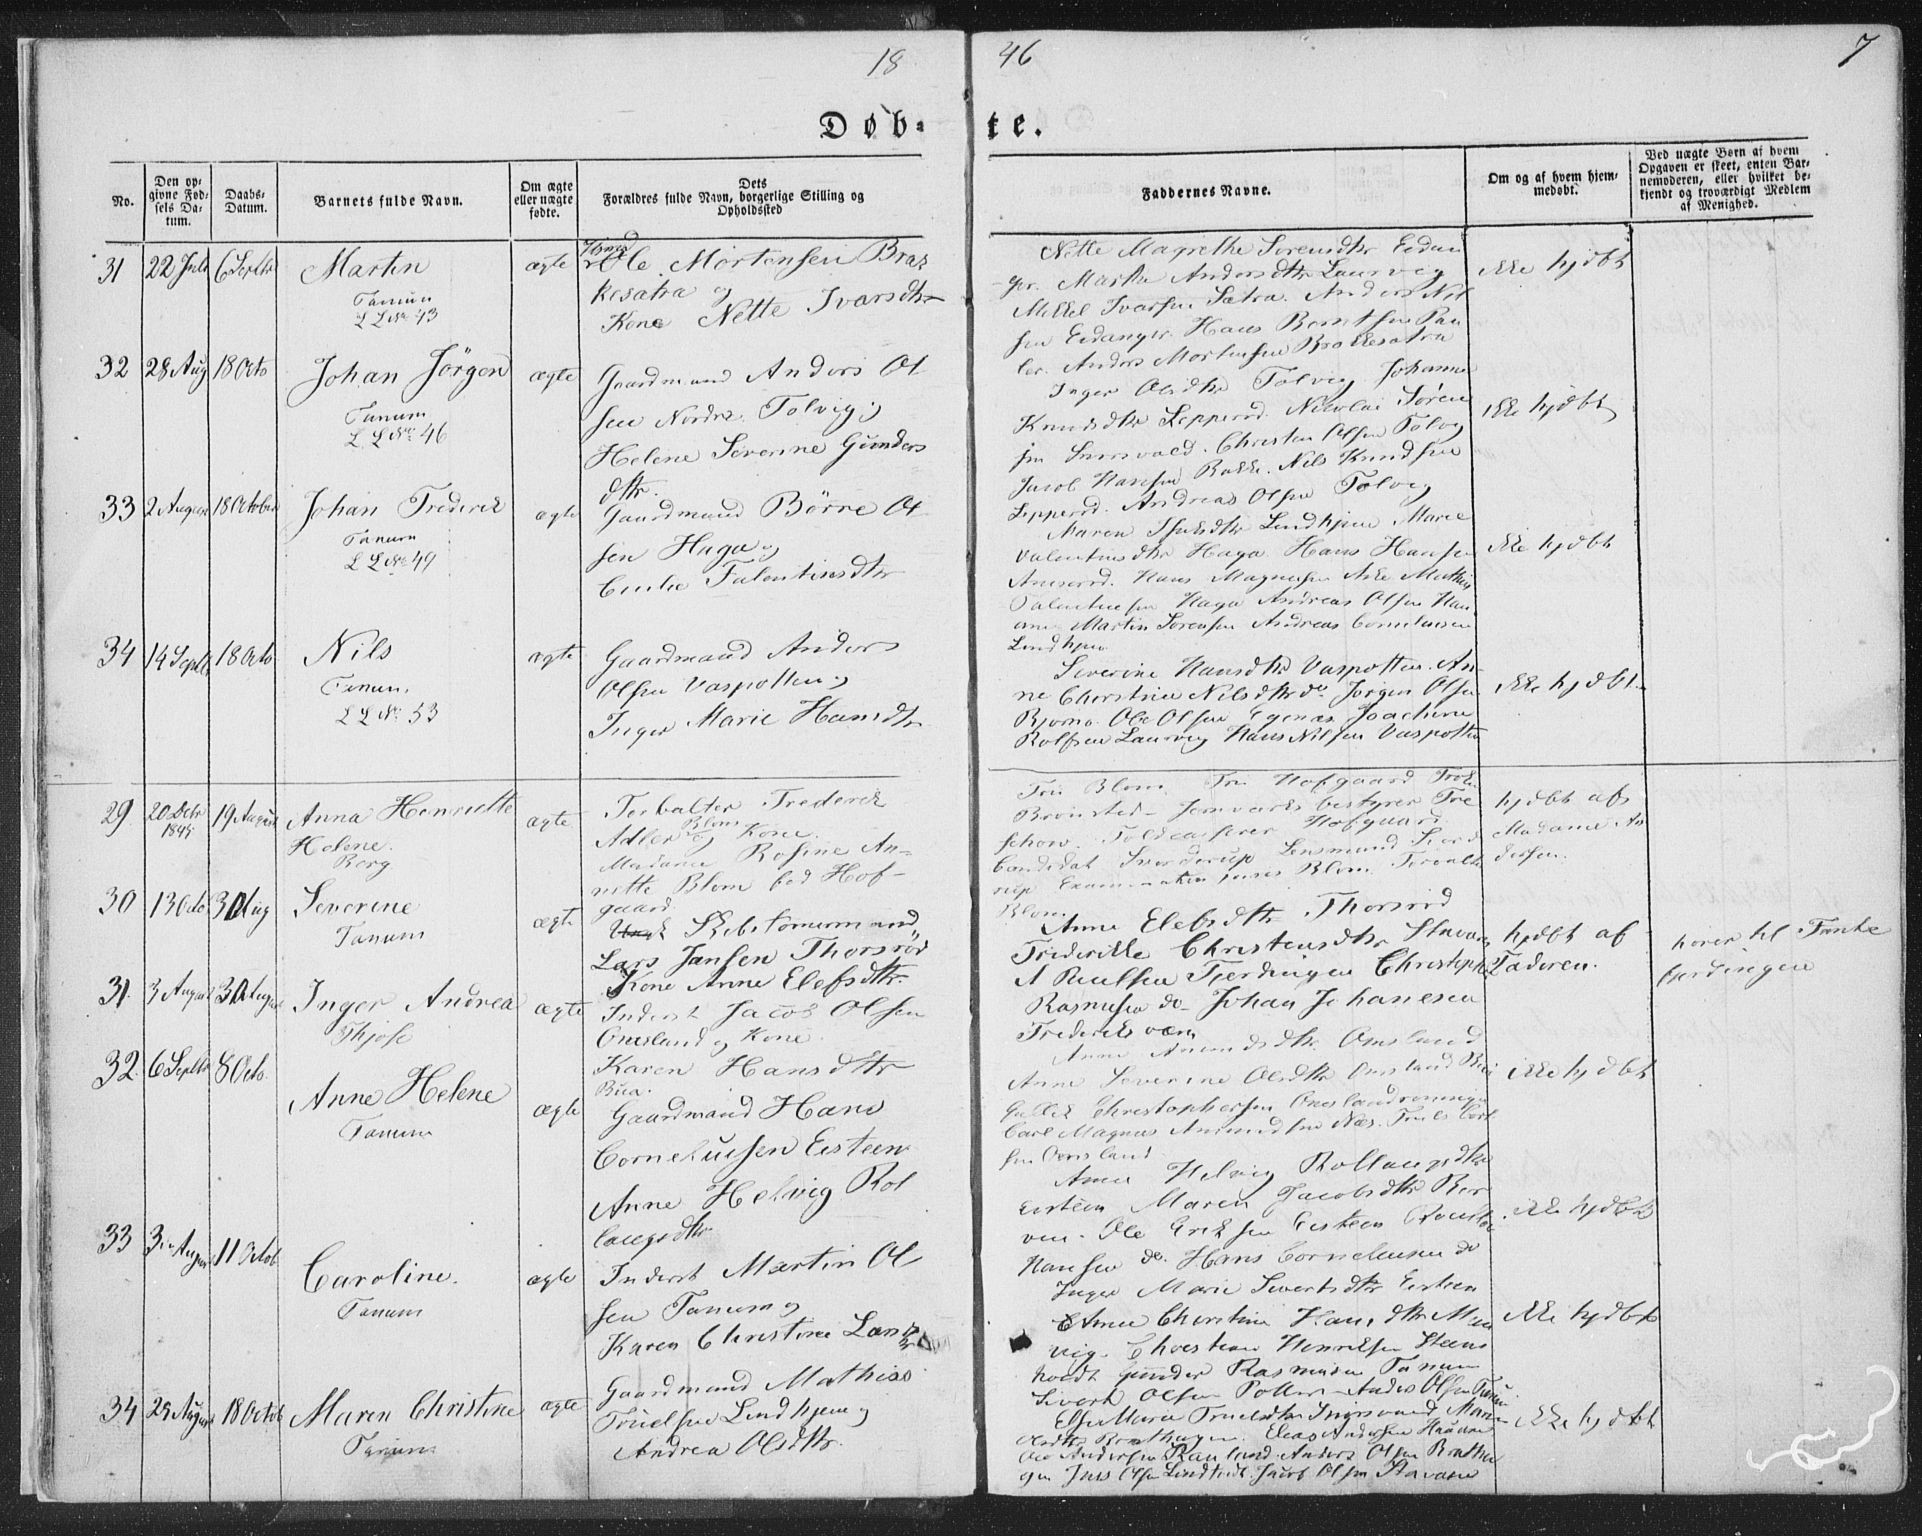 18
46
7
Døb-
te.
No.
Den op-
givne Fød-
sels Da-
tum.
Daabs-
Datum.
Barnets fulde Navn.
Om ægte
eller uægte
fødte.
Dets
Forældres fulde Navn, borgerlige Stilling og
Opholdssted
Faddernes Navne.
Om og af hvem hjem-
medøbt.
Ved uægte Børn af hvem
Opgaven er skeet, enten Bar-
nemoderen, eller hvilket be-
kjendt og troværdigt Medlem
af Menighed.
31
22 Juli
6 Septbr
Martin
Tanum
L L No 43
ægte
Ole Mortensen Brae
kesatra og
Kone Nette Ivarsdtr
Nette Magrethe Sorensdtr Eidan
ger. Marthe Andersdtr Laurvig
Mikkel Ivarsen Sætra. Anders Nil
sen Eidanger. Hans Berntsen Pau
ler. Anders Mortensen Brækkesatra
ikke hjdbt
32
28 Aug
18 Octo
Johan Jörgen
Tanum
L L No 46
ægte
Gaardmand Anders Ol
sen Nordre Tolvig og
Helene Severine Gunders
dtr.
Inger Olsdtr Tolvig Johanne
Knudsdtr Lepperød. Nikolai Sören
sen. Christen Olsen Tolvig
Jacob Hansen Bakke. Nils Knudsen
Lepperod. Andreas Olsen Tolvig
ikke hjdbt
33
2 August
18 October
Johan Frederik
Tanum
L L No 49
ægte
Gaardmand Börre Ol
sen Haga og
Falentinsdtr
Maren Lindhjem Marie
Valentinsdtr Haga Hans Hansen
Hans Magnusen Aske Mathis
Valentinsen Haga Andreas Olsen Hau
ane Martin Sorensen Andreas Cornelius­en
Lindhjem
ikke hjdbt
34
14 Septb
18 Octo
Nils
Tanum.
L L No 53
ægte
Gaardmand Anders
Olsen Vaspotten og
Inger Marie Hansdtr
Severine Hansdtr Vaspotten. An-
ne Christine Nilsdtr do. Jörgen Olsen
Bjorno. Ole Olsen Joachim
Rolfsen Laurvig Hans Nilsen Vaspotten
ikke hjdbt.
29
20 Decbr
1845
19 August
Anna Henriette
Helene.
Berg
ægte
Toldbetjent Frederik
Adler Blom
og Kone.
Madame Rosine An-
nette Blom fød Hof-
gaard
Fru Blom. Fru Hofgaard Frøk.
Bronsted - Jernværks bestyrer Tre
schow. Toldkasserer Hofgaard.
Candidat Sverdrup Lensmand
Blom.
hjdbt af
Madame An
dersen.
30
13 Octo
30 Aug
Severine
Tanum
ægte
Skibstommermand
Lars Jansen Thorsröd
Kone Anne Elefsdtr.
Anne Elefsdtr Thorsrod
Friderikke Christensdtr Stavarn
A Paulsen Fjerdingen Christopher
Rasmusen do - Johan Johanesen
Frederiksværn
hjdbt af
Faderen.
hører til Tanke
fjerdingen
31.
3 August
30 August
Inger Andrea
Thjose
ægte
Inderst Jacob Olsen
Omsland og Kone
Karen Hansdtr
Bua.
Anne Amundsdtr Omsland
Anne Severine Olsdtr Omsland Bua
Christophersen Omslandroningen
Carl Magnus Amundsen Næs. Truls Carl
sen Omsland
ikke hjdbt
32.
6 Septbr
8 Octo.
Anne Helene
Tanum
ægte
Gaardmand Hans
Corneliusen Eisteen
Anne Helvig Rol
laugsdtr
Anne Helvig Rollaugsdtr
Eisteen Maren Jacobsdtr Ber
ven. Ole Eriksen Eisteen
Hansen do. Hans Corneliusen do
Inger Marie Sivertsdtr Eisteen
ikke hjdbt
33
11 Octob
Caroline.
Tanum
ægte
Inderst Martin Ol
sen Tanum og
Karen Christine
Anne Christine Hansdtr
vig. Christian Henriksen Steens
holdt Gunder Rasmusen Tanum
Sivert Olsen Anders Olsen Tanum
ikke hjdbt
34
25 August
18 Octob
Maren Christine
Tanum
ægte
Gaardmand Mathias
Truelsen Lindhjem og
Andrea Olsdtr.
Else Marie Truelsdtr Maren
Olsdtr Elias Andersen Hauane
Ole Andersen Anders Olsen
Jens Olsen Jacob Olsen
ikke hjdbt